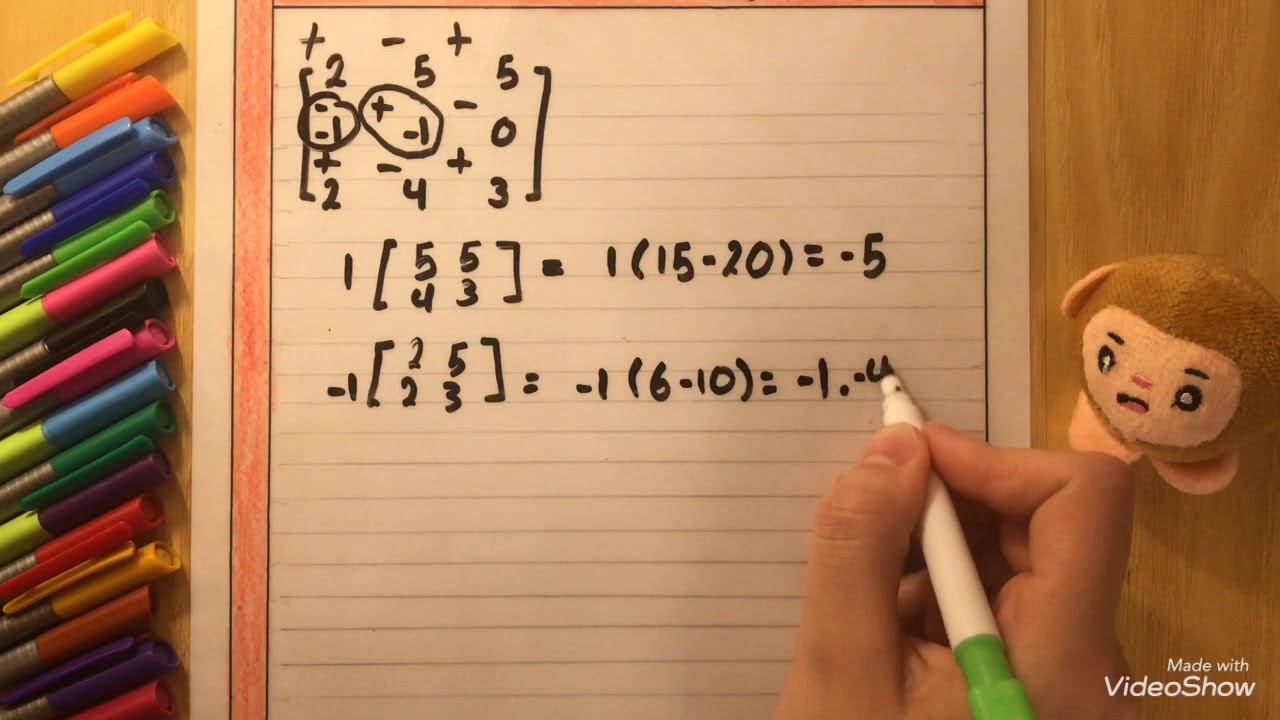 + - +
[ 2 5 5 ]
- + -
-1 -1 0
+ - +
2 4 3
1 [ 5 5 ] = 1(15-20) = -5
4 3
-1 [ 2 5 ] = -1(6-10) = -1.-4
2 3
Made with
VideoShow